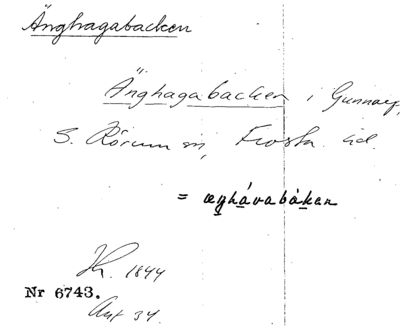 Änghagabacken
Änghagabacken i Gunnarp,
S. Rörum sn, Frosta hd
= æŋhávabàkan
1844
Nr 6743.
34.